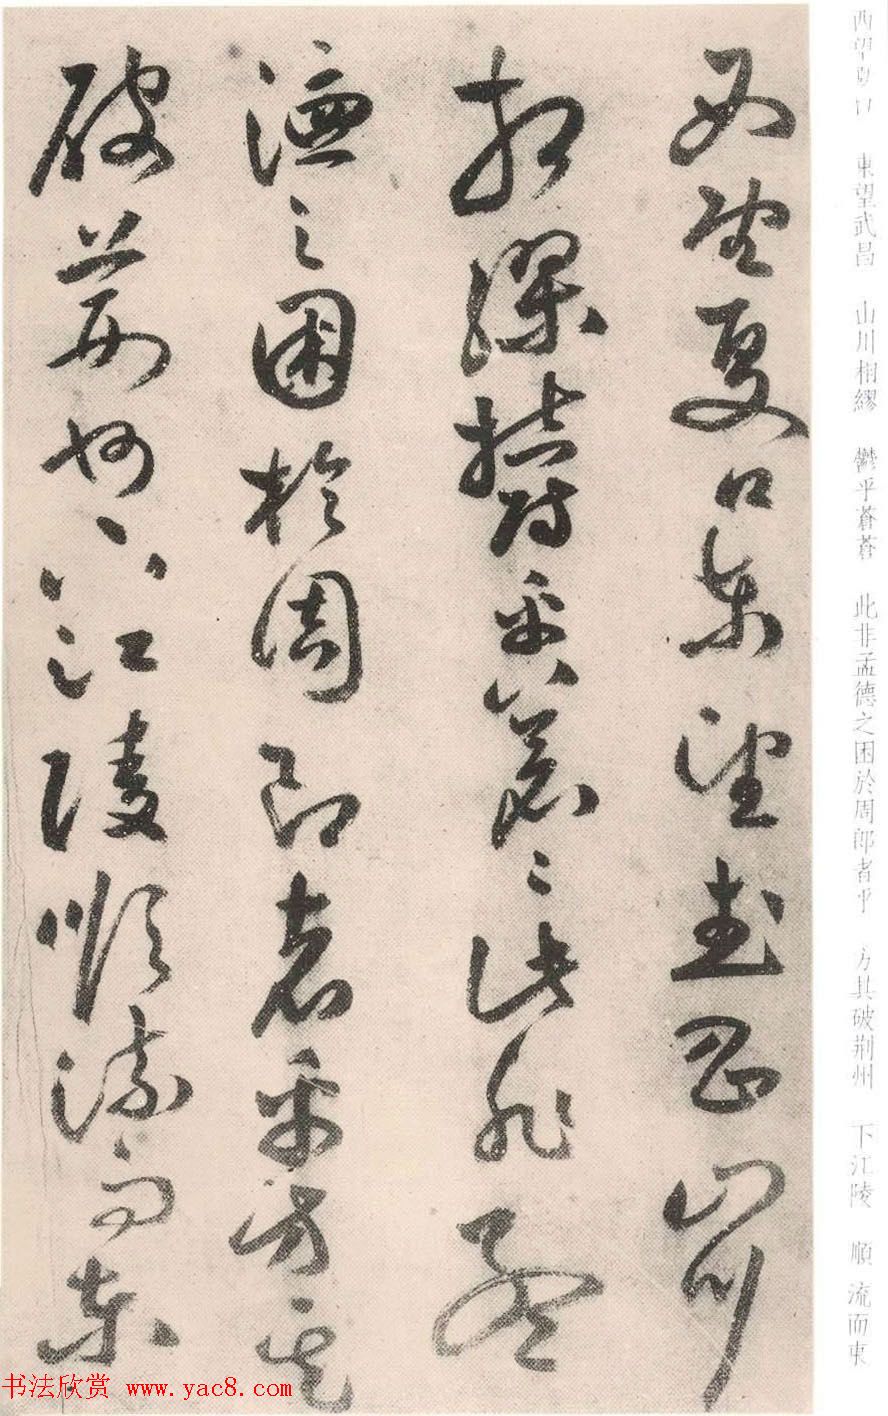 西望夏口東望武昌山川
相繆鬱乎蒼〻此非孟
德之困於周郎者乎方其
破荊州下江陵順流而東
西望夏口 東望武昌 山川相繆 鬱乎蒼蒼 此非孟德之困於周郎者乎 方其破荊州 下江陵 順流而東
书法欣赏 www.yac8.com